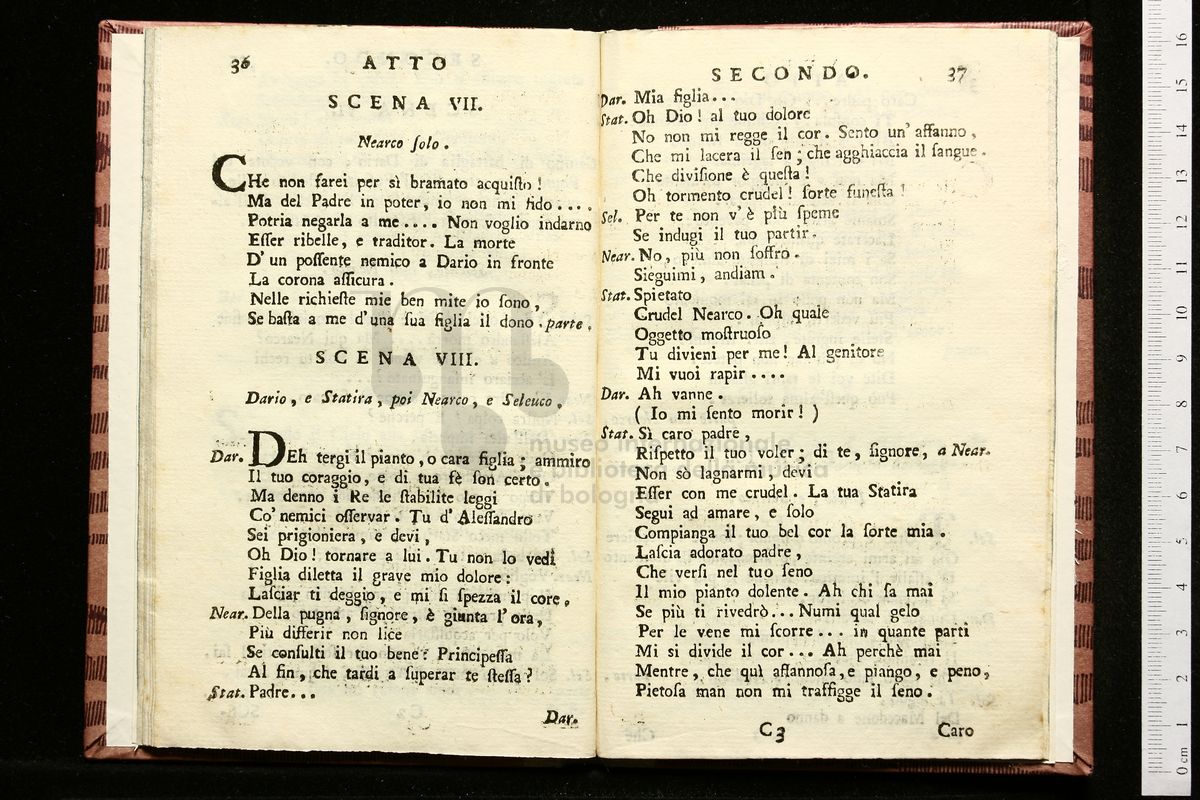 36 ATTO
SCENA VII.
Nearco ſolo.
CHe non farei per sì bramato acquiſto!
Ma del Padre in poter, io non mi fido....
Potria negarla a me.... Non voglio indarno
Eſſer ribelle, e traditor. La morte
D'un poſſente nemico a Dario in fronte
La corona aſſicura.
Nelle richieſte mie ben mite io ſono,
Se baſta a me d'una ſua figlia il dono. parte.
SCENA VIII.
Dario, e Statira, poi Nearco, e Seleuco.
Dar. DEh tergi il pianto, o cara figlia; ammiro
Il tuo coraggio, e di tua fè ſon certo.
Ma denno i Re le ſtabilite leggi
Co' nemici oſſervar. Tu d'Aleſſandro
Sei prigioniera, e devi,
Oh Dio! tornare a lui. Tu non lo vedi
Figlia diletta il grave mio dolore:
Laſciar ti deggio, e mi ſi ſpezza il core.
Near. Della pugna, ſignore, è giunta l'ora,
Più differir non lice
Se conſulti il tuo bene: Principeſſa
Al fin, che tardi a ſuperar te ſteſſa?
Stat. Padre...
Dar.
SECONDO. 37
Dar. Mia figlia...
Stat. Oh Dio! al tuo dolore
No non mi regge il cor. Sento un' affanno,
Che mi lacera il ſen; che agghiaccia il ſangue.
Che diviſione è queſta!
Oh tormento crudel! ſorte funeſta!
Sel. Per te non v'è più ſpeme
Se indugi il tuo partir.
Near. No, più non ſoffro.
Sieguimi, andiam.
Stat. Spietato
Crudel Nearco. Oh quale
Oggetto moſtruoſo
Tu divieni per me! Al genitore
Mi vuoi rapir....
Dar. Ah vanne.
(Io mi ſento morir!)
Stat. Sì caro padre,
Riſpetto il tuo voler; di te, ſignore, a Near.
Non so lagnarmi, devi
Eſſer con me crudel. La tua Statira
Segui ad amare, e ſolo
Compianga il tuo bel cor la ſorte mia.
Laſcia adorato padre,
Che verſi nel tuo ſeno
Il mio pianto dolente. Ah chi ſa mai
Se più ti rivedrò... Numi qual gelo
Per le vene mi ſcorre... in quante parti
Mi si divide il cor... Ah perchè mai
Mentre, che quì affannoſa, e piango, e peno,
Pietoſa man non mi traffigge il ſeno.
C3 Caro
museo internazionale
e biblioteca della musica
di bologna
0 cm 1 2 3 4 5 6 7 8 9 10 11 12 13 14 15 16